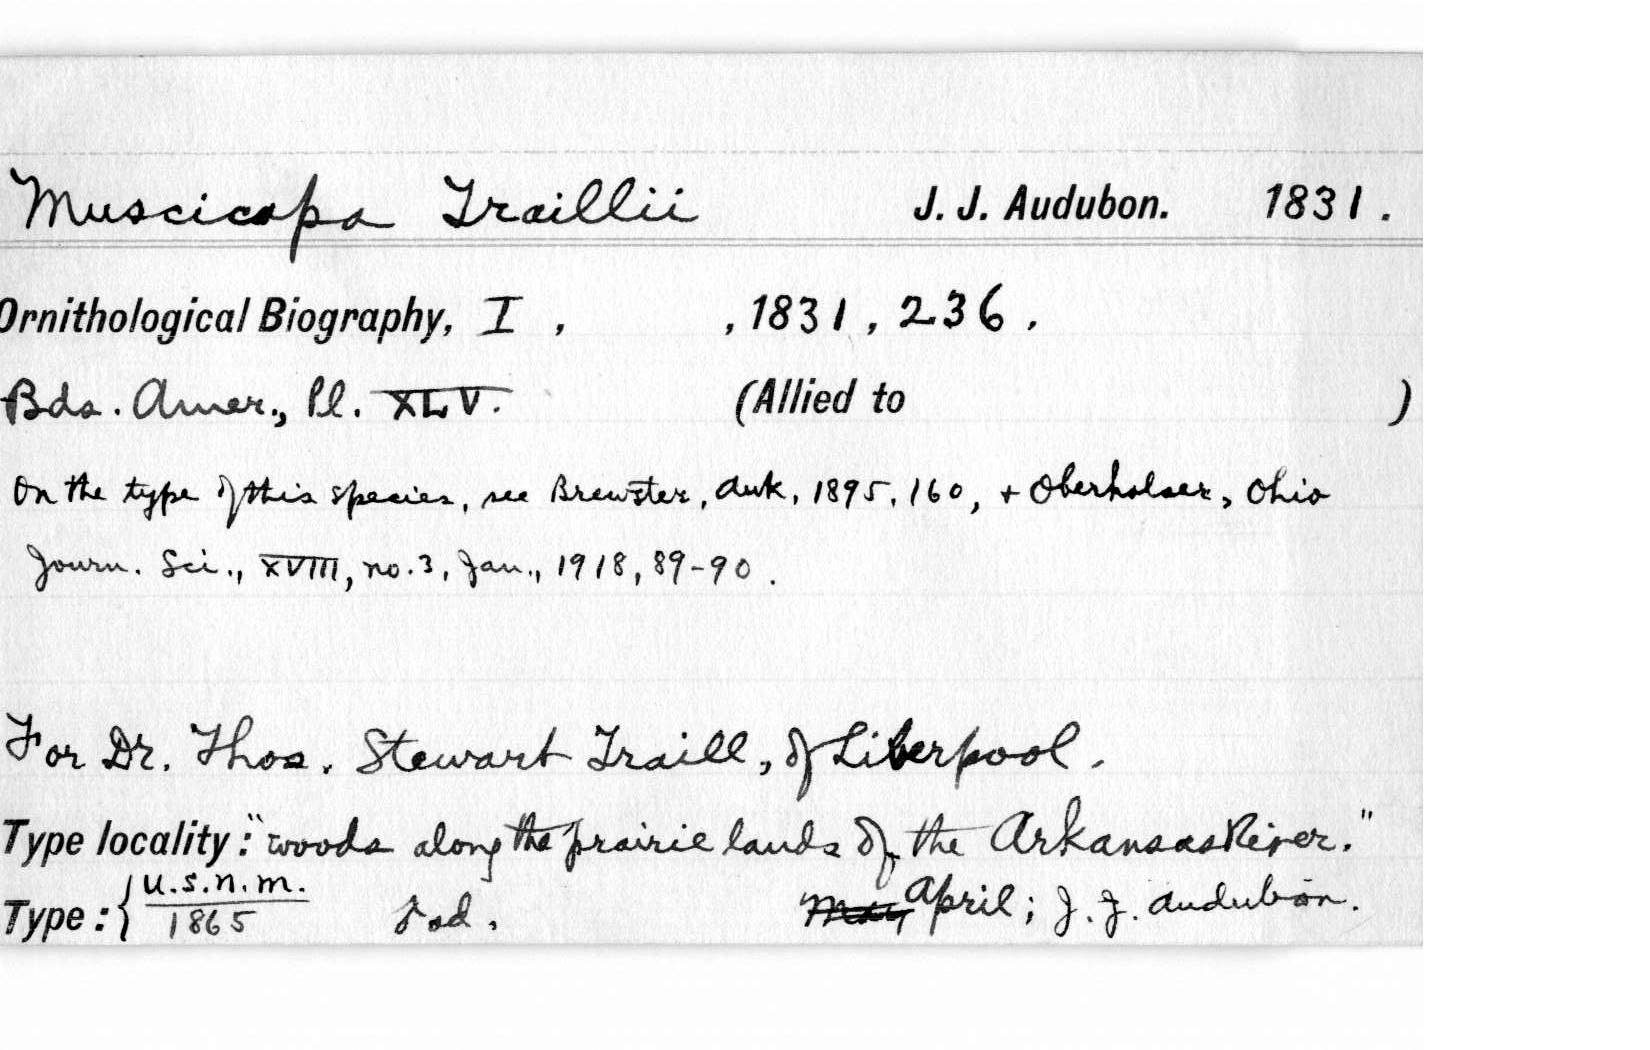 Muscicapa Traillii J. J. Audubon. 1831.
Ornithological Biography, I , , 1831, 236.
Bds. Amer., Pl. XLV. (Allied to )
On the type of this species, see Brewster, Auk, 1895, 160, + Oberholser, Ohio
Journ. Sci., XVIII, no. 3, Jan., 1918, 89-90.
For Dr. Thos. Stewart Traill, of Liverpool.
Type locality: "woods along the prairie lands of the Arkansas River."
Type: { U.S.N.M. / 1865 ad. May April; J. J. Audubon.